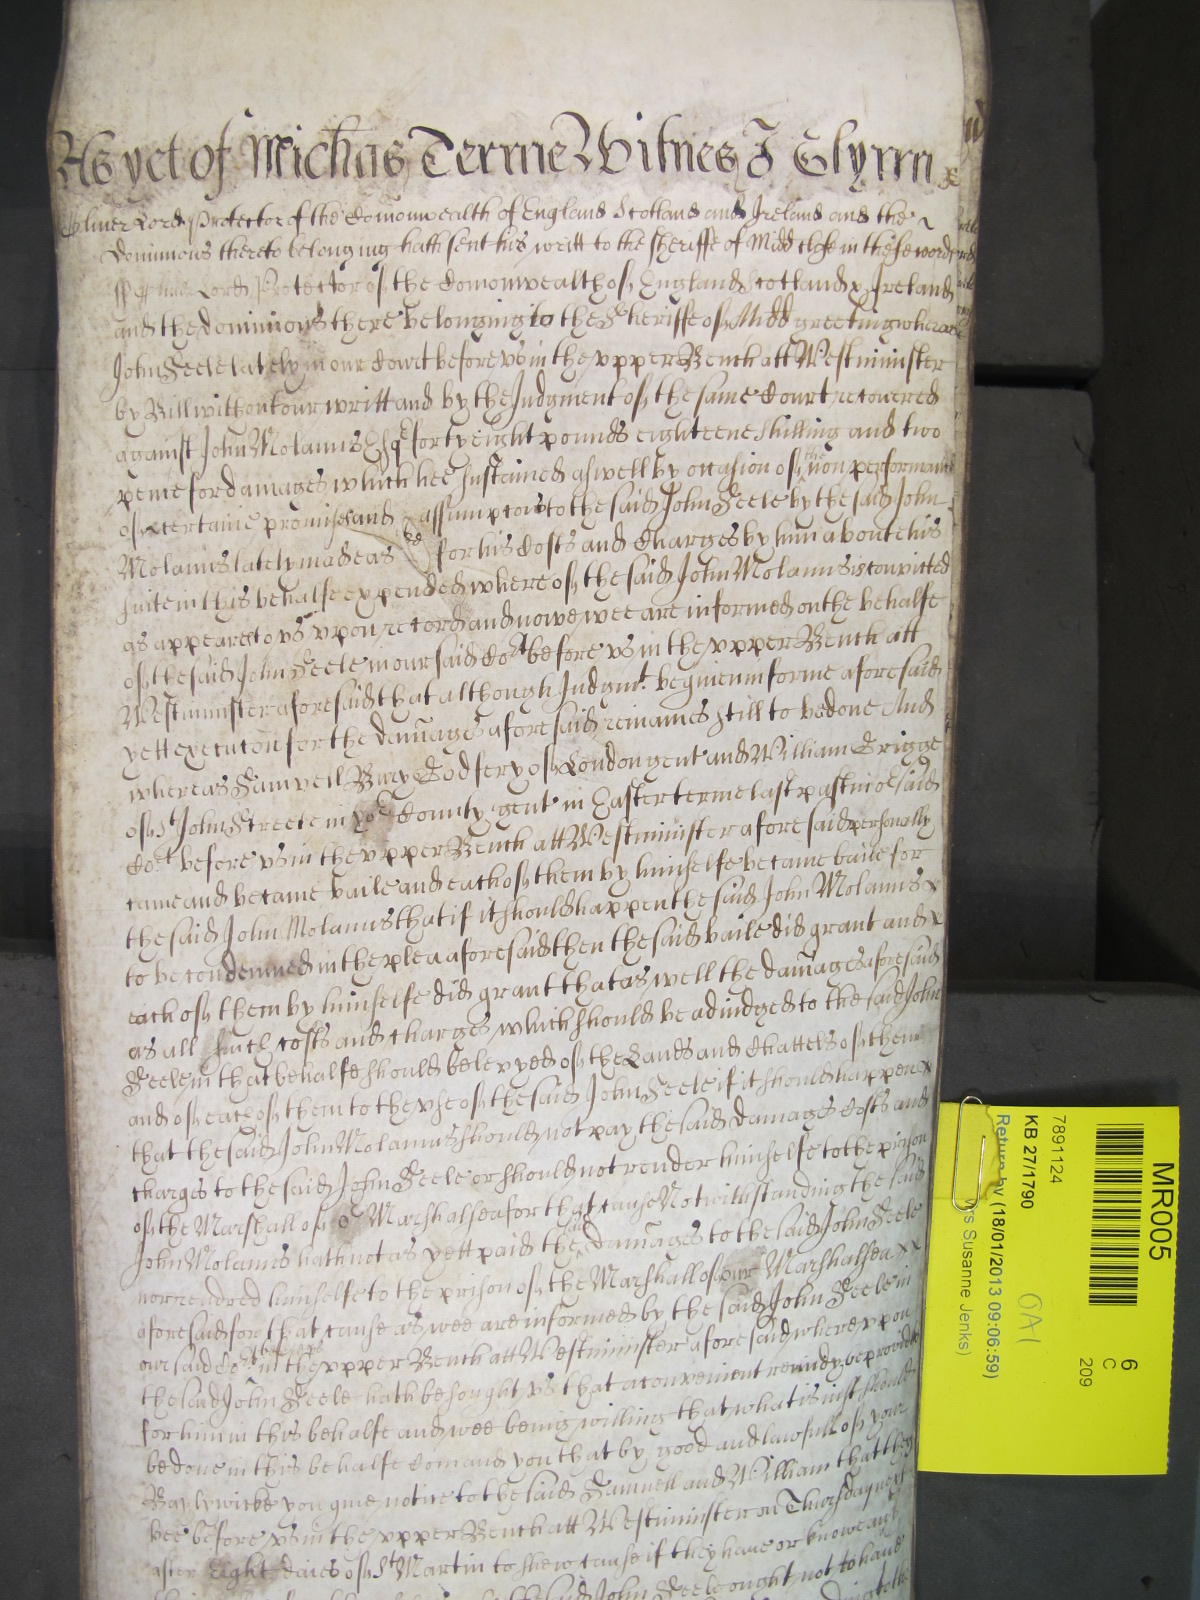 As yet of Mich̃as Terme Witnes J Glynn
Oliver Lord Protector of the Comonwealth of England Scotland and Ireland and the
Dominions thereto belonging hath sent his writt to the Sheriffe of Midd close in these words
ss Oliver Lord Protector of the Comonwealth of England Scotland & Ireland
and the dominions there belonging to the Sheriffe of Midd greeting whereas
John Seele lately in our Court before us in the upper Bench att Westminster
by Bill without our writt and by the Judgment of the same Court recovered
against John Molanus Esqr forty eight pounds eighteene shilling and two
pence for damages which hee sustained aswell by occasion of the non performance
of certaine promises and assumptons to the said John Seele by the said John
Molanus lately made as for his Costs and Charges by him about his
suite in this behalfe expended whereof the said John Molanus is convicted
as appeareto us upon record and nowe wee are informed on the behalfe
of the said John Seele in our said Cort before us in the upper Bench att
Westminster aforesaid that although Judgmt. be given in forme aforesaid
yett execucon for the damages aforesaid remaines still to bedone And
whereas Samuell Bury Godfery of London gent and William Grigge
of St John Streete in yor County gent in Easter terme last past in oe said
Cort before us in the upper Bench att Westminster aforesaid personally
came and became baile and each of them by himselfe became baile for
the said John Molanus that if it should happen the said John Molanus x
to be condemned in the plea aforesaid then the said baile did grant and x
each of them by himselfe did grant that as well the damages aforesaid
as all such costs and charges which should be adiudged to the said John
Seele in that behalfe should be levyed of the Lands and Chattels of them
and of each of them to the use of the said John Seele if it should happen x
that the said John Molanus should not pay the said damages Costs and
charges to the said John Seele or should not render himselfe to the prison
of the Marshall of oe Marshalsea for that cause Notwithstanding the said
John Molanus hath not as yett paid the said damages to the said John Seele
nor rendred himselfe to the prison of the Marshall of our Marshalsea x x
aforesaid for that cause as wee are informed by the said John Seele in
our said Cort before us in the upper Bench att Westminster aforesaid whereupon
the said John Seele hath besought us that a convenient remidy be provided
for him in this behalfe and wee being willing that what is iust should
bedone in this behalfe Comand you that by good and lawfull of your
Baylywicke you give notice to the said Samuell and William that they
bee before us in the upper Bench att Westminster on Thursday next
after Eight daies of St Martin to shew cause if they have or knowe any
said John Seele ought not to have
MR005
6
C
209
7891124
KB 27/1790
Return by (18/01/2013 09:06:59)
Mrs Susanne Jenks)
OA1